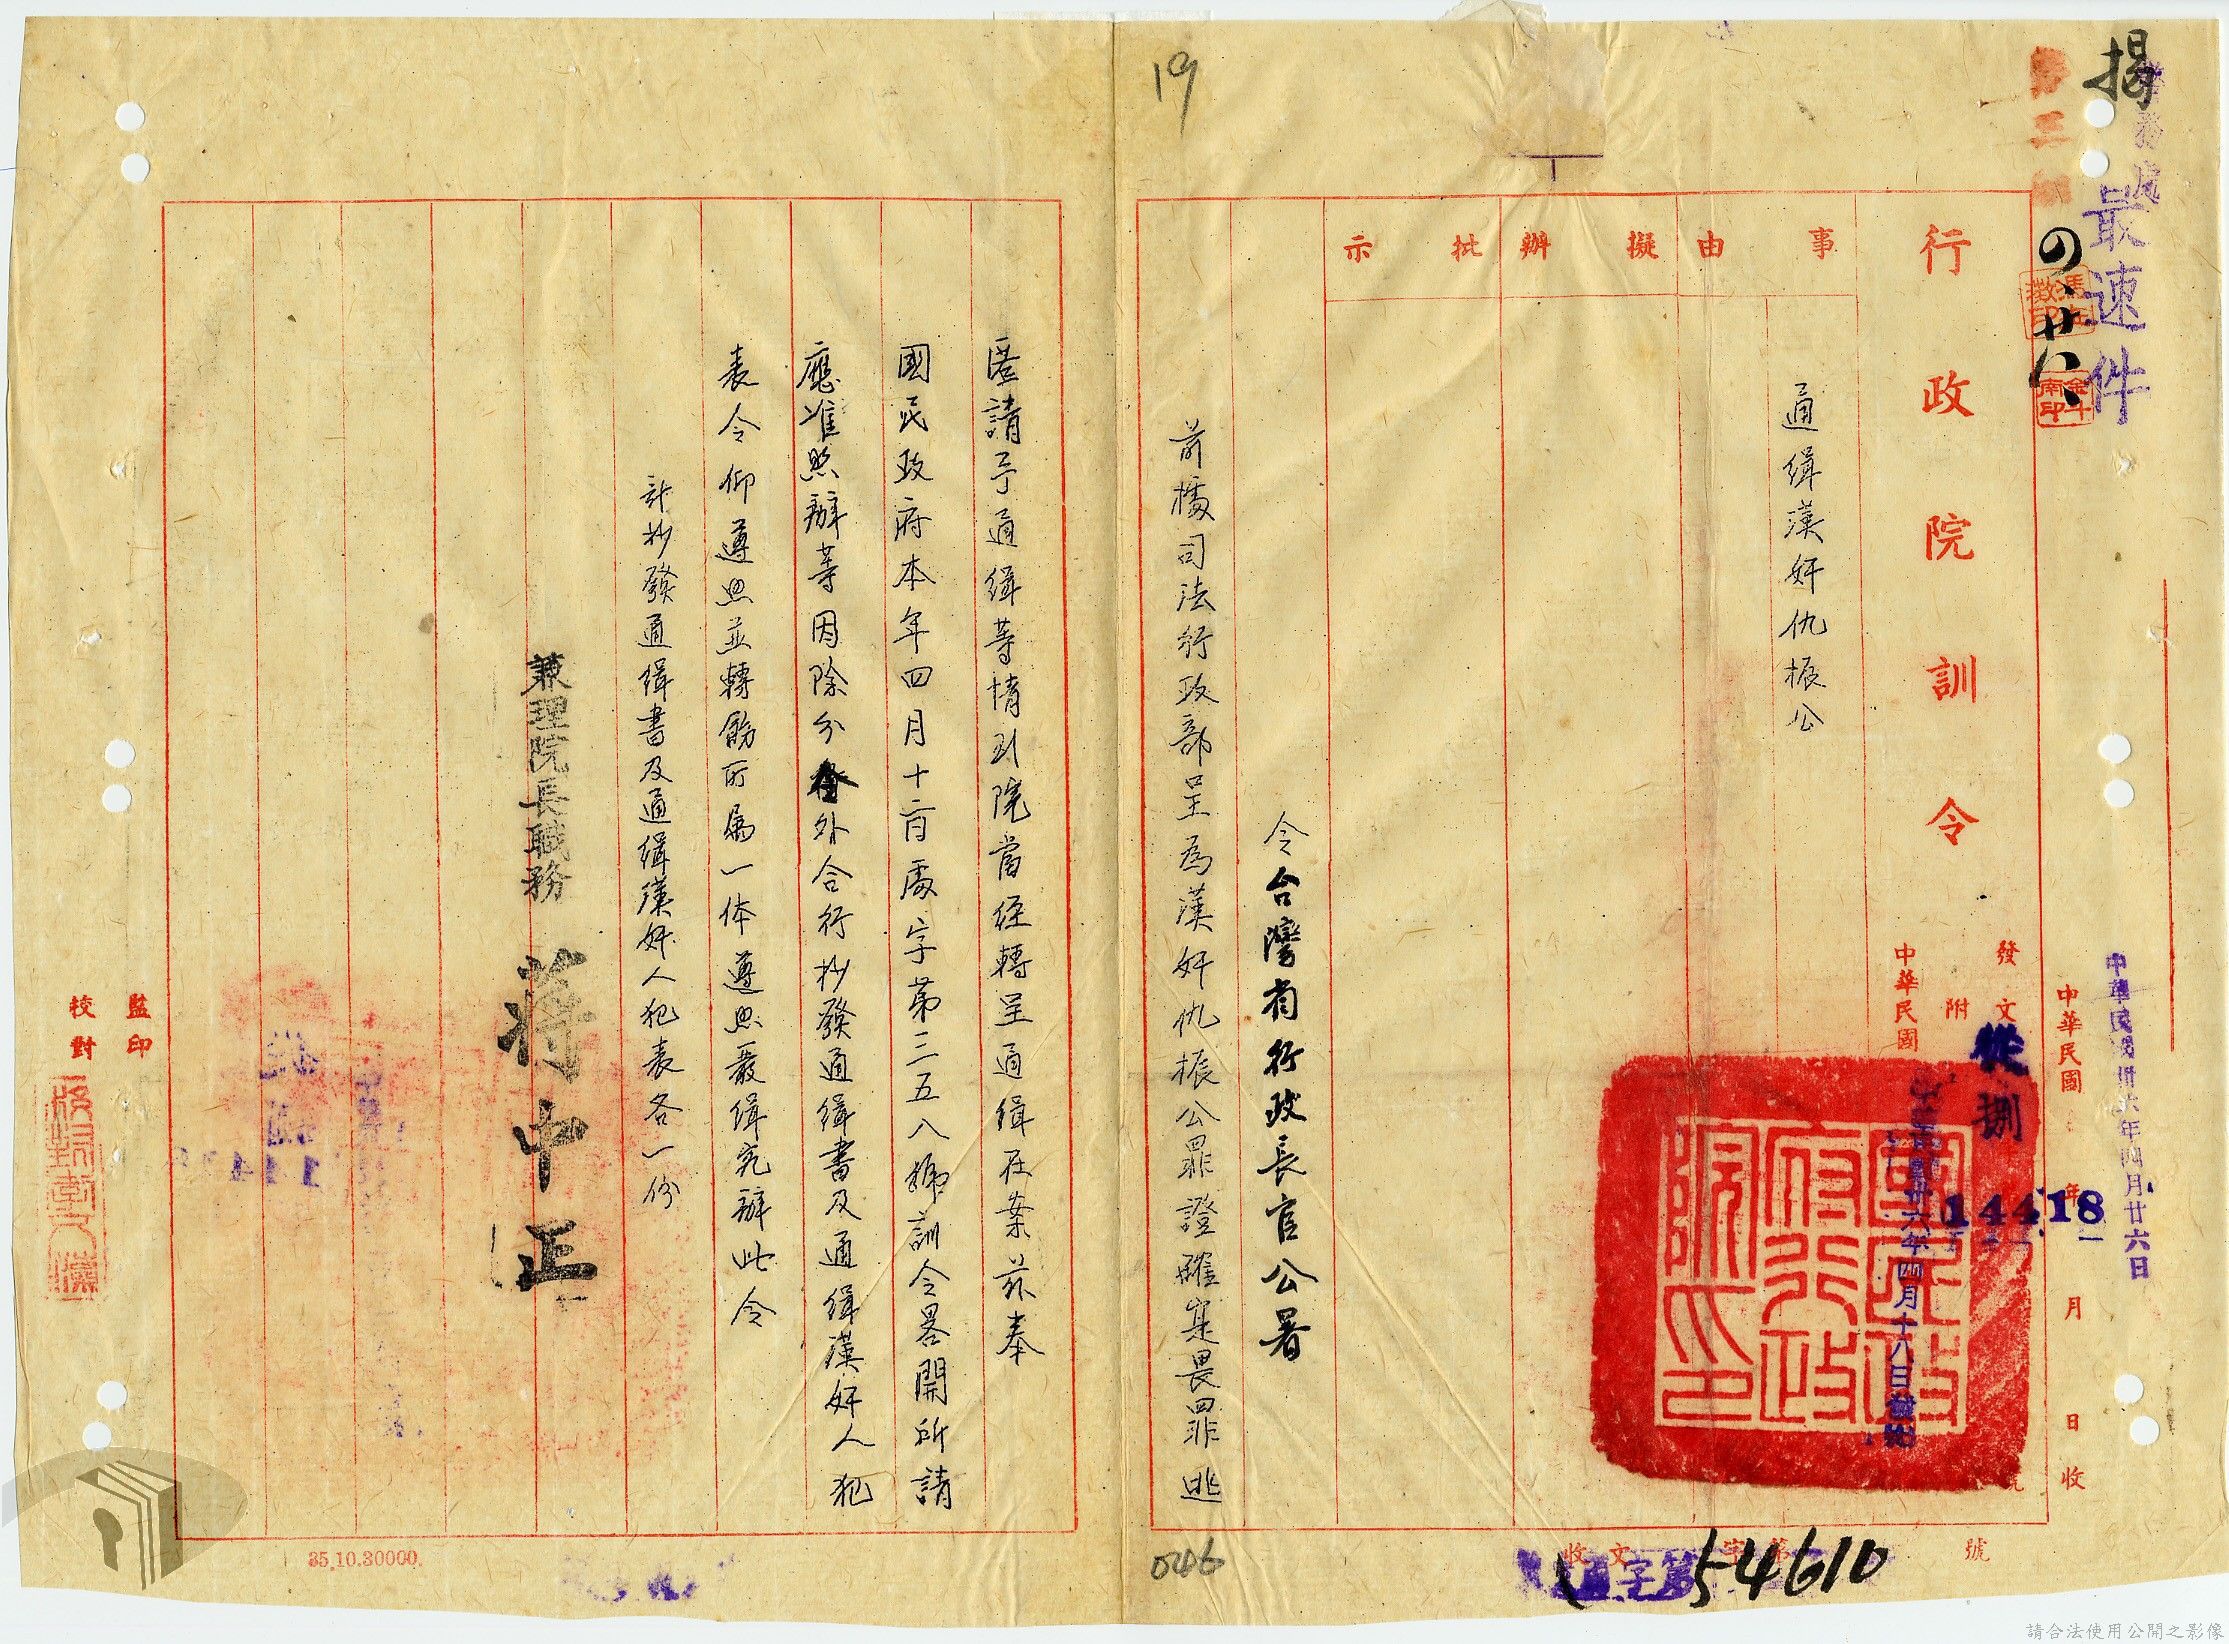 揚
最速件
四、廿八、
行政院訓令
發文
附
中華民國
從捌
14418
卅六年四月十八日發
中華民國卅六年四月廿六日
中華民國 年 月 日收
事由
擬辦
批示
通緝漢奸仇振公
令台灣省行政長官公署
前據司法行政部呈為漢奸仇振公罪證確寔畏罪逃
匿請予通緝等情到院當經轉呈通緝在案茲奉
國民政府本年四月十一日處字第三五八號訓令畧開所請
應准照辦等因除分令外合行抄發通緝書及通緝漢奸人犯
表令仰遵照並轉飭所屬一体遵照嚴緝究辦此令
計抄發通緝書及通緝漢奸人犯表各一份
兼理院長職務 蔣中正
監印
校對
收文 字第 54610 號
19
046
35.10.30000.
請合法使用公開之影像